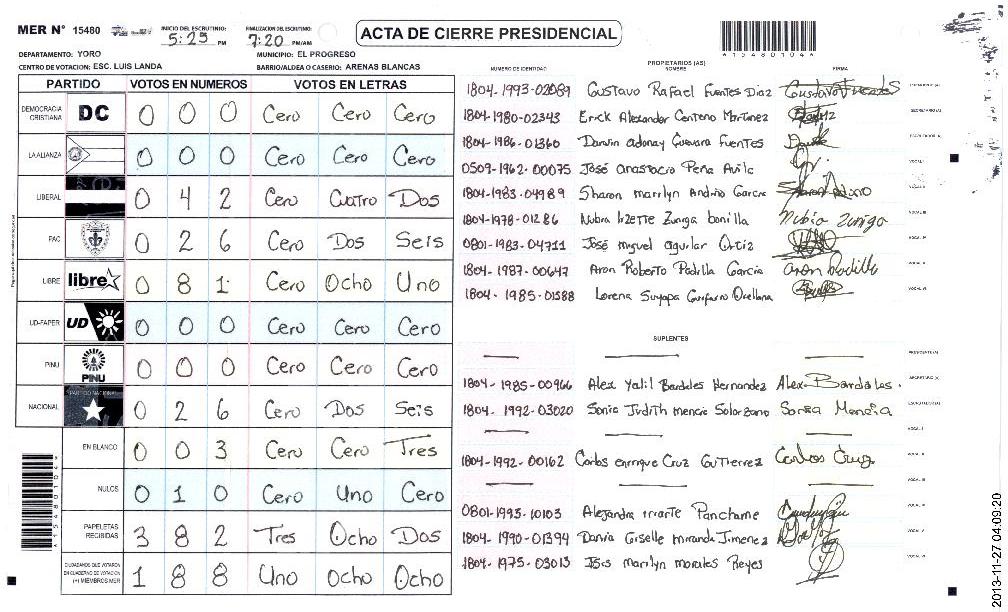 MER N° 15480
INICIO DEL ESCRUTINIO: 5:25 PM
FINALIZACION DEL ESCRUTINIO: 7:20 PM/AM
ACTA DE CIERRE PRESIDENCIAL
DEPARTAMENTO: YORO
MUNICIPIO: EL PROGRESO
CENTRO DE VOTACION: ESC. LUIS LANDA
BARRIO/ALDEA O CASERIO: ARENAS BLANCAS
PARTIDO VOTOS EN NUMEROS VOTOS EN LETRAS
DEMOCRACIA CRISTIANA DC 0 0 0 Cero Cero Cero
LA ALIANZA 0 0 0 Cero Cero Cero
LIBERAL 0 4 2 Cero Cuatro Dos
PAC 0 2 6 Cero Dos Seis
LIBRE libre 0 8 1 Cero Ocho Uno
UD-FAPER UD 0 0 0 Cero Cero Cero
PINU PINU 0 0 0 Cero Cero Cero
NACIONAL PARTIDO NACIONAL 0 2 6 Cero Dos Seis
EN BLANCO 0 0 3 Cero Cero Tres
NULOS 0 1 0 Cero Uno Cero
PAPELETAS RECIBIDAS 3 8 2 Tres Ocho Dos
CIUDADANOS QUE VOTARON EN CUADERNO DE VOTACION (+) MIEMBROS MER 1 8 8 Uno Ocho Ocho
PROPIETARIOS (AS)
NUMERO DE IDENTIDAD NOMBRE FIRMA
1804-1993-02089 Gustavo Rafael Fuentes Diaz Gustavo Fuentes
1804-1980-02343 Erick Alexander Centeno Martinez
1804-1986-01360 Darwin adonay Guevara Fuentes
0509-1962-00075 José anastacio Peña Avila
1804-1983-04989 Sharon marilyn Andino Garcia
1804-1978-01286 Nubia lizette Zuniga bonilla Nubia Zuniga
0801-1983-04711 José miguel aguilar Ortiz
1804-1987-00647 Aron Roberto Padilla Garcia aron Padilla
1804-1985-01588 Lorena Suyapa Guifarro Orellana
SUPLENTES
1804-1985-00966 Alex Yalil Bardales Hernandez Alex Bardales.
1804-1992-03020 Sonia Judith mencia Solorzano Sonia Mencia
1804-1992-00162 Carlos enrrique Cruz Gutierrez Carlos Cruz
0801-1993-10103 Alejandra iriarte Panchame
1804-1990-01394 Dania Giselle miranda Jimenez
1804-1975-03013 Isis marilyn morales Reyes
2013-11-27 04:09:20